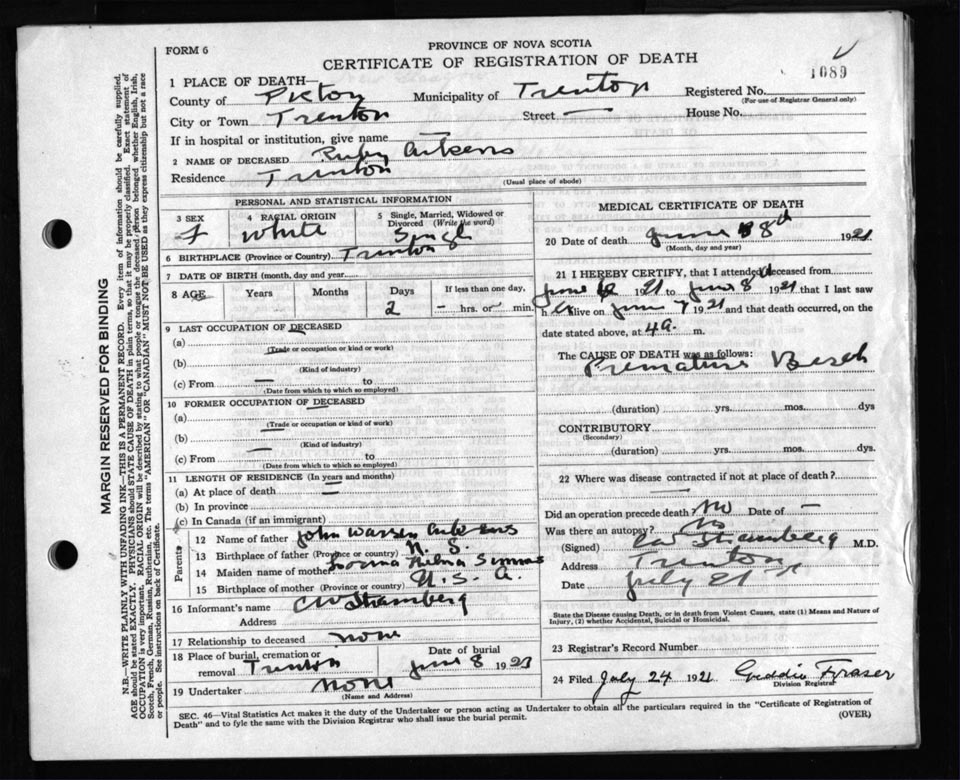 PROVINCE OF NOVA SCOTIA
FORM 6
CERTIFICATE OF REGISTRATION OF DEATH
1089
1 PLACE OF DEATH—
County of Pictou Municipality of Trenton Registered No.
(For use of Registrar General only)
City or Town Trenton Street — House No.
If in hospital or institution, give name —
2 NAME OF DECEASED Ruby Aitkens
Residence Trenton
(Usual place of abode)
PERSONAL AND STATISTICAL INFORMATION
3 SEX 4 RACIAL ORIGIN 5 Single, Married, Widowed or Divorced (Write the word)
F White Single
6 BIRTHPLACE (Province or Country) Trenton
7 DATE OF BIRTH (month, day and year)
8 AGE Years Months Days If less than one day,
2 — hrs. or — min.
9 LAST OCCUPATION OF DECEASED
(a)
(Trade or occupation or kind or work)
(b)
(Kind of industry)
(c) From — to
(Date from which to which so employed)
10 FORMER OCCUPATION OF DECEASED
(a)
(Trade or occupation or kind of work)
(b)
(Kind of industry)
(c) From — to
(Date from which to which so employed)
11 LENGTH OF RESIDENCE (In years and months)
(a) At place of death —
(b) In province
(c) In Canada (if an immigrant)
Parents
12 Name of father John Warren Aitkens
13 Birthplace of father (Province or country) N. S.
14 Maiden name of mother
15 Birthplace of mother (Province or country) U. S. A.
16 Informant's name C W Stramberg
Address
17 Relationship to deceased none
18 Place of burial, cremation or removal Trenton
Date of burial June 8 192
19 Undertaker none
(Name and Address)
MEDICAL CERTIFICATE OF DEATH
20 Date of death June 8th 1921
(Month, day and year)
21 I HEREBY CERTIFY, that I attended deceased from
June 6 1921 to June 8 1921 that I last saw
h er alive on June 7 1921 and that death occurred, on the
date stated above, at 4 a. m.
The CAUSE OF DEATH was as follows:
Premature Birth
(duration) yrs. mos. dys
CONTRIBUTORY
(Secondary)
(duration) yrs. mos. dys
22 Where was disease contracted if not at place of death?
—
Did an operation precede death? No Date of —
Was there an autopsy? No
(Signed) C W Stramberg M.D.
Address Trenton
Date July 21
State the Disease causing Death, or in death from Violent Causes, state (1) Means and Nature of
Injury, (2) whether Accidental, Suicidal or Homicidal.
23 Registrar's Record Number
24 Filed July 24 1921 Fraser
Division Registrar
SEC. 46—Vital Statistics Act makes it the duty of the Undertaker or person acting as Undertaker to obtain all the particulars required in the "Certificate of Registration of
Death" and to fyle the same with the Division Registrar who shall issue the burial permit.
(OVER)
MARGIN RESERVED FOR BINDING
N.B.—WRITE PLAINLY WITH UNFADING INK—THIS IS A PERMANENT RECORD. Every item of information should be carefully supplied.
AGE should be stated EXACTLY. PHYSICIANS should STATE CAUSE OF DEATH in plain terms, so that it may be properly classified. Exact statement of
OCCUPATION is very important. RACIAL ORIGIN will be described by stating to what people or tongue the deceased person belonged whether English, Irish,
Scotch, French, German, Russian, Ruthenian, etc. The terms "AMERICAN" OR "CANADIAN" MUST NOT BE USED as they express citizenship but not a race
or people. See instructions on back of Certificate.